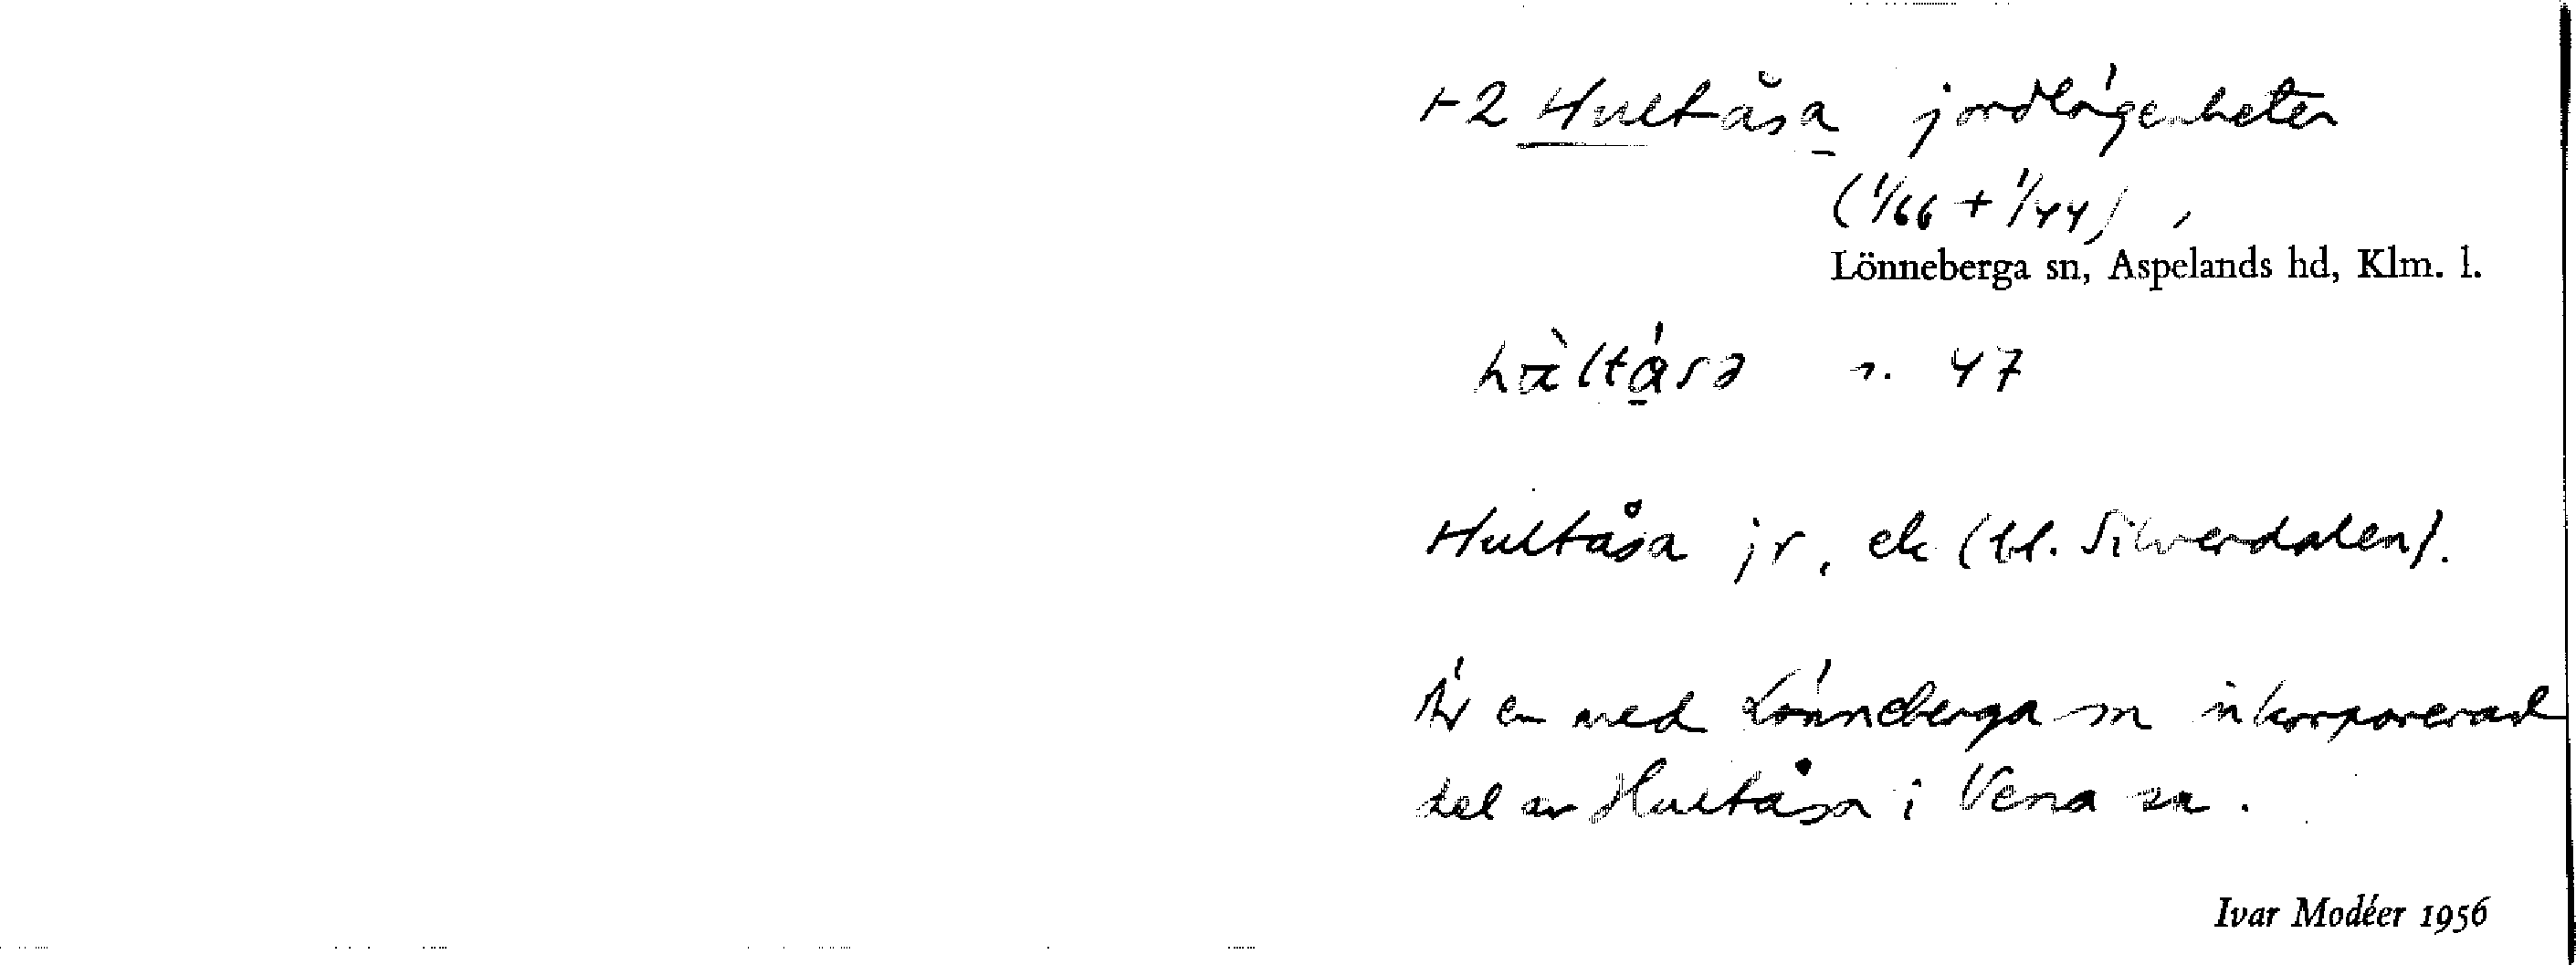 +2 Hultåsa jordlägenheter
(1/66 + 1/44),
Lönneberga sn, Aspelands hd, Klm. l.
47
Hultåsa jr, ek (bl. Silverdalen).
Är en med Lönneberga sn inkorporerad
del av Hultåsa i Vena sn.
Ivar Modéer 1956